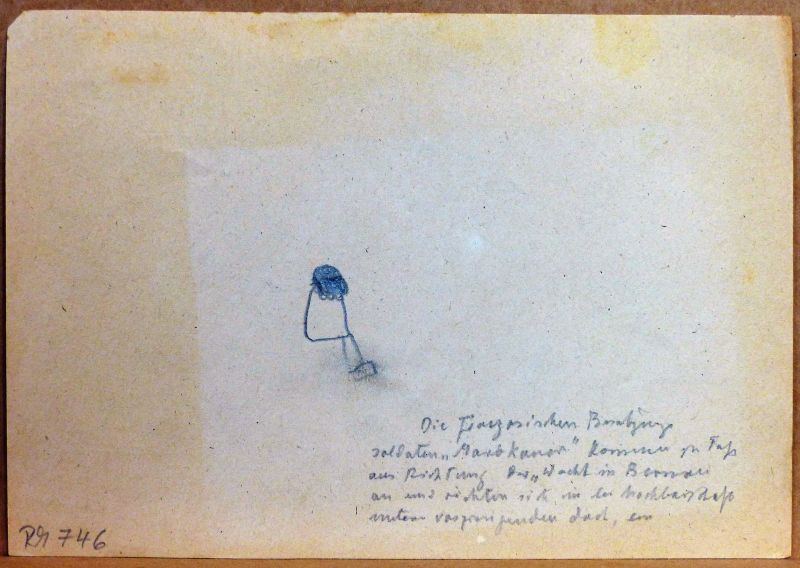 Die französischen Besatzungs
soldaten „Marokkaner" kommen zu Fuß
aus Richtung der „Wacht in Bernau
an und richten sich in der Nachbarschaft
unterm vorspringenden Dach, ein
RY 746